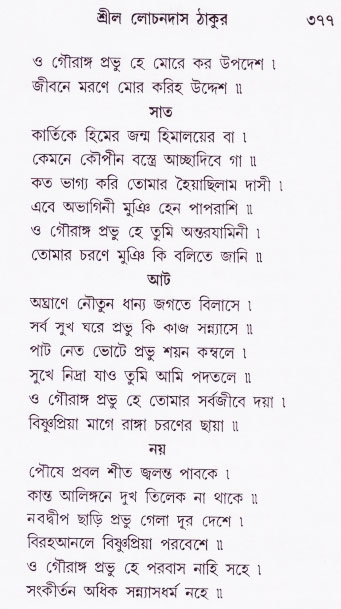 শ্রীল লোচনদাস ঠাকুর ৩৭৭
ও গৌরাঙ্গ প্রভু হে মোরে কর উপদেশ।
জীবনে মরণে মোর করিহ উদ্দেশ॥
সাত
কার্তিকে হিমের জন্ম হিমালয়ের বা।
কেমনে কৌপীন বস্ত্রে আচ্ছাদিবে গা॥
কত ভাগ্য করি তোমার হৈয়াছিলাম দাসী।
এবে অভাগিনী মুঞি হেন পাপরাশি॥
ও গৌরাঙ্গ প্রভু হে তুমি অন্তরযামিনী।
তোমার চরণে মুঞি কি বলিতে জানি॥
আট
অঘ্রাণে নৌতুন ধান্য জগতে বিলাসে।
সর্ব সুখ ঘরে প্রভু কি কাজ সন্ন্যাসে॥
পাট নেত ভোটে প্রভু শয়ন কম্বলে।
সুখে নিদ্রা যাও তুমি আমি পদতলে॥
ও গৌরাঙ্গ প্রভু হে তোমার সর্বজীবে দয়া।
বিষ্ণুপ্রিয়া মাগে রাঙ্গা চরণের ছায়া॥
নয়
পৌষে প্রবল শীত জ্বলন্ত পাবকে।
কান্ত আলিঙ্গনে দুখ তিলেক না থাকে॥
নবদ্বীপ ছাড়ি প্রভু গেলা দূর দেশে।
বিরহআনলে বিষ্ণুপ্রিয়া পরবেশে॥
ও গৌরাঙ্গ প্রভু হে পরবাস নাহি সহে।
সংকীর্তন অধিক সন্ন্যাসধর্ম নহে॥